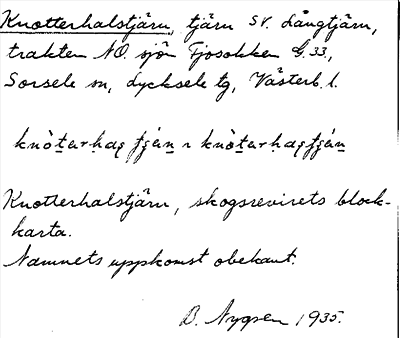 Knotterhalstjärn, tjärn SV. Långtjärn,
trakten NO. sjön Fjosokken G.33.,
Sorsele sn, Lycksele tg, Västerb. l.
Knotterhalstjärn, skogsrevirets block-
karta.
Namnets uppkomst obekant.
B. Nygren 1935.